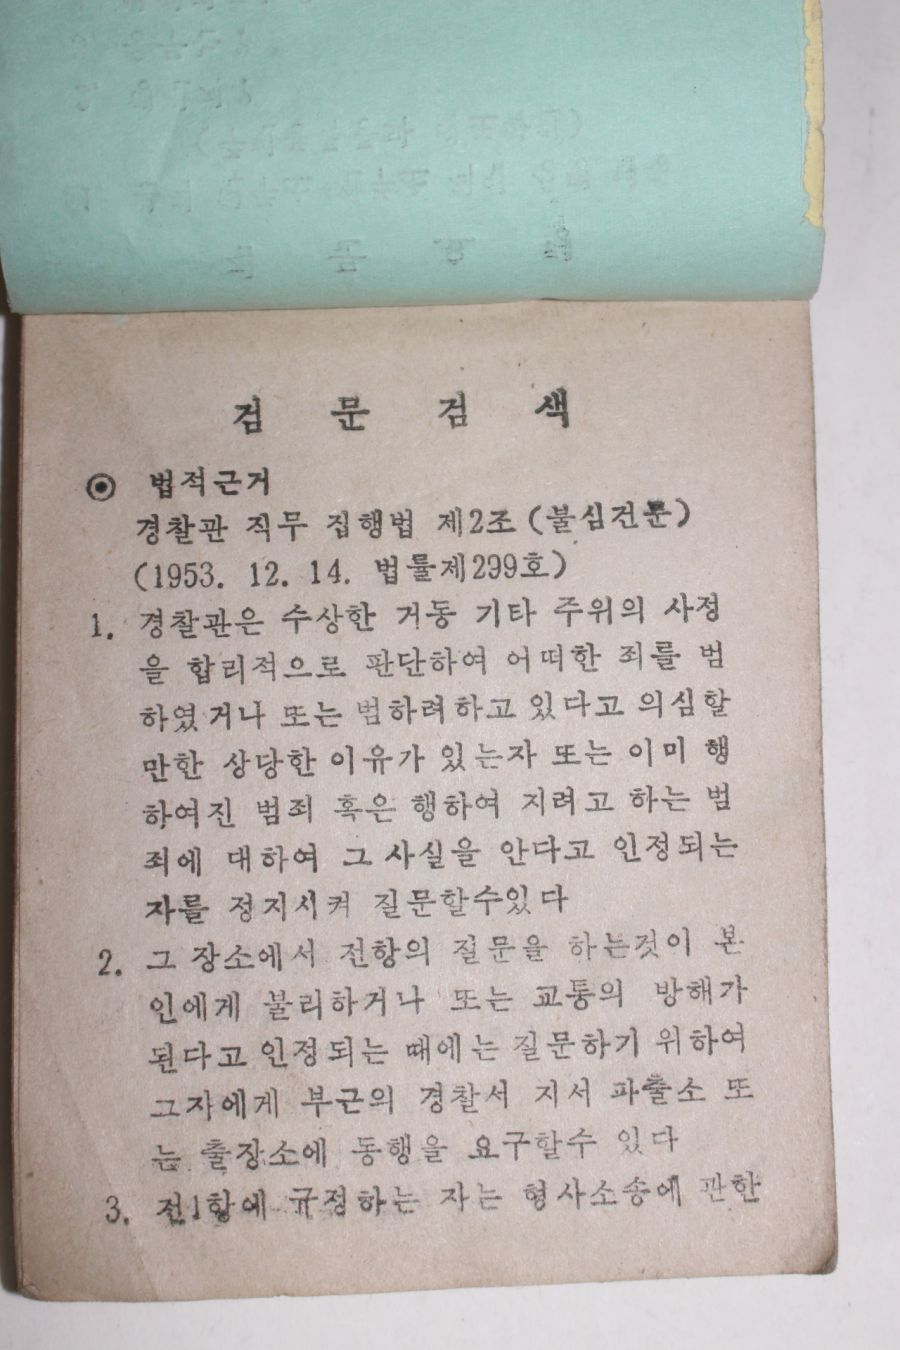 검 문 검 색
◉ 법적근거
경찰관 직무 집행법 제2조 (불심건문)
(1953. 12. 14. 법률제299호)
1. 경찰관은 수상한 거동 기타 주위의 사정
을 합리적으로 판단하여 어떠한 죄를 범
하였거나 또는 범하려하고 있다고 의심할
만한 상당한 이유가 있는자 또는 이미 행
하여진 범죄 혹은 행하여 지려고 하는 범
죄에 대하여 그 사실을 안다고 인정되는
자를 정지시켜 질문할수있다
2. 그 장소에서 전항의 질문을 하는것이 본
인에게 불리하거나 또는 교통의 방해가
된다고 인정되는 때에는 질문하기 위하여
그자에게 부근의 경찰서 지서 파출소 또
는 출장소에 동행을 요구할수 있다
3. 전1항에 규정하는 자는 형사소송에 관한